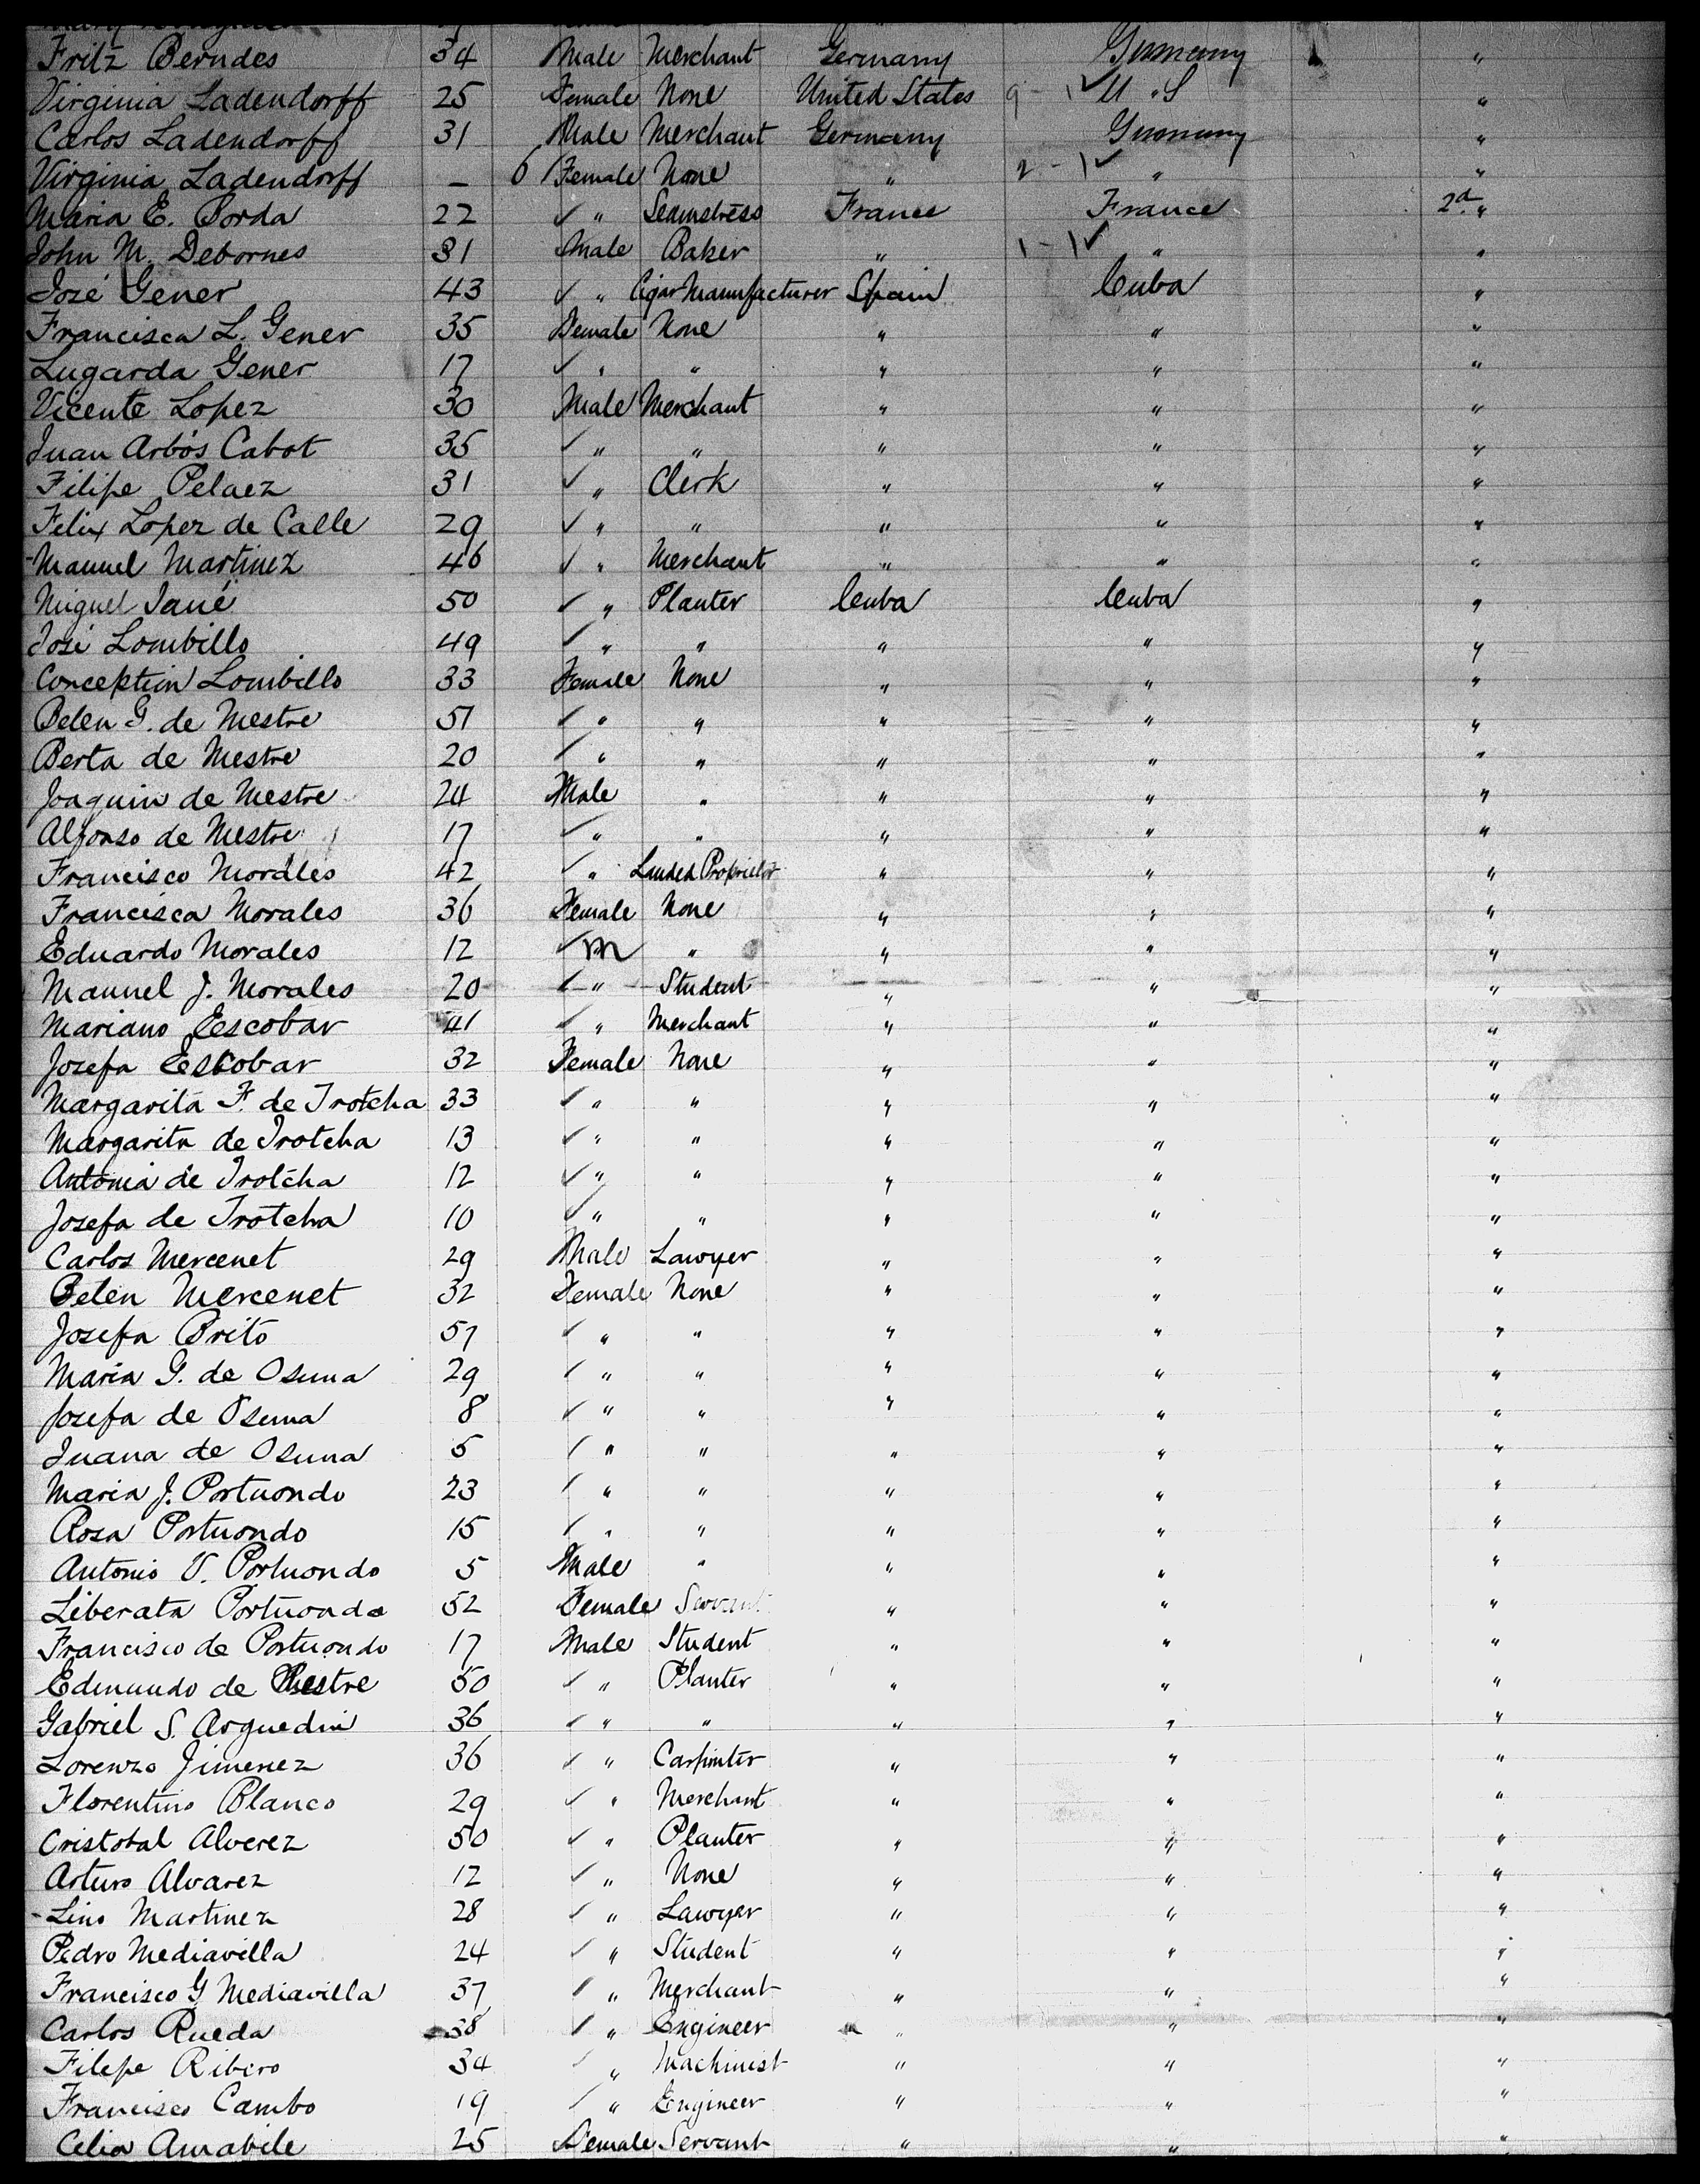 Fritz Berndes 34 Male Merchant Germany Germany "
Virginia Ladendorff 25 Female None United States 9 - 1 ✓ U " S "
Carlos Ladendorff 31 Male Merchant Germany Germany "
Virginia Ladendorff – 6 Female None " 2 - 1 ✓ " "
Maria E. Borda 22 ✓ " Seamstress France France 2d "
John M. Debornes 31 Male Baker " 1 - 1 ✓ " "
José Gener 43 ✓ " Cigar Manufacturer Spain Cuba "
Francisca L. Gener 35 Female None " " "
Lugarda Gener 17 ✓ " " " " "
Vicente Lopez 30 Male Merchant " " "
Juan Arbós Cabot 35 ✓ " " " " "
Filipe Pelaez 31 ✓ " Clerk " " "
Felix Lopez de Calle 29 ✓ " " " " "
- Manuel Martinez 46 ✓ " Merchant " " "
Miguel Jané 50 ✓ " Planter Cuba Cuba "
José Lombillo 49 ✓ " " " " "
Conception Lombillo 33 Female None " " "
Belen G. de Mestre 51 ✓ " " " " "
Berta de Mestre 20 ✓ " " " " "
Joaquin de Mestre 24 Male " " " "
Alfonso de Mestre 17 ✓ " " " " "
Francisco Morales 42 ✓ " Landed Proprietor " " "
Francisca Morales 36 Female None " " "
Eduardo Morales 12 ✓ M " " " "
Manuel J. Morales 20 ✓ " Student " " "
Mariano Escobar 41 ✓ " Merchant " " "
Josefa Escobar 32 Female None " " "
Margarita F. de Trotcha 33 ✓ " " " " "
Margarita de Trotcha 13 ✓ " " " " "
Antonia de Trotcha 12 ✓ " " " " "
Josefa de Trotcha 10 ✓ " " " " "
Carlos Mercenet 29 Male Lawyer " " "
Belen Mercenet 32 Female None " " "
Josefa Brito 57 ✓ " " " " "
Maria G. de Osuna 29 ✓ " " " " "
Josefa de Osuna 8 ✓ " " " " "
Juana de Osuna 5 ✓ " " " " "
Maria J. Portuondo 23 ✓ " " " " "
Rosa Portuondo 15 ✓ " " " " "
Antonio V. Portuondo 5 Male " " " "
Liberata Portuondo 52 Female Servant " " "
Francisco de Portuondo 17 Male Student " " "
Edmundo de Mestre 50 ✓ " Planter " " "
Gabriel S. Arguedin 36 ✓ " " " " "
Lorenzo Jimenez 36 ✓ " Carpinter " " "
Florentino Blanco 29 ✓ " Merchant " " "
Cristobal Alverez 50 ✓ " Planter " " "
Arturo Alvarez 12 ✓ " None " " "
- Lino Martinez 28 ✓ " Lawyer " " "
Pedro Mediavilla 24 ✓ " Student " " "
Francisco G Mediavilla 37 ✓ " Merchant " " "
Carlos Rueda 38 ✓ " Engineer " " "
Filepe Ribero 34 ✓ " Machinist " " "
Francisco Cambo 19 ✓ " Engineer " " "
Celia Amabile 25 Female Servant " " "